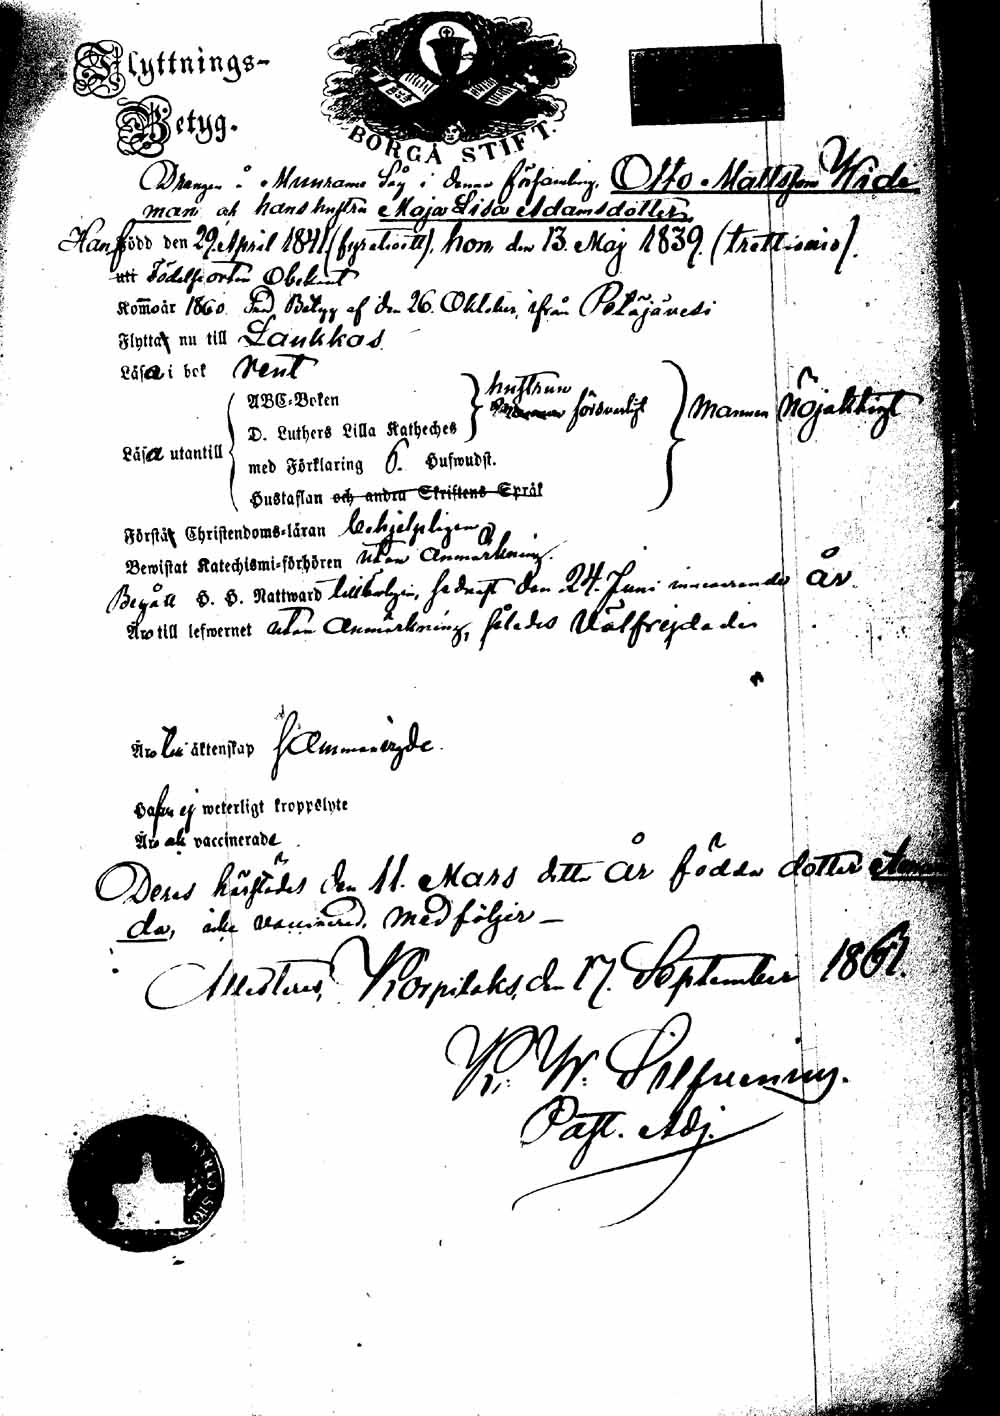 Flyttnings-
Betyg.
BORGÅ STIFT.
Drängen å Muurame Såg i denna församling, Otto Mattsson Wide
man och hans hustru Maja Lisa Adamsdotter
Han född den 29. April 1841 (fyrationett), hon den 13. Maj 1839. (trettionio).
uti Födelseorten Obekant
Kommoår 1860. med Betyg af den 26. Oktober, ifrån Petäjävesi
Flytta nu till Laukkas
Läsa i bok rent
ABC-Boken
hustrun försvarligt
mannen nöjaktigt
D. Luthers Lilla Katheches
Läsa utantill
med Förklaring 6. Hufwudst.
Hustaflan och andra Skriftens Språk
Förstå Christendoms-läran behjelpligen
Bewistat Katechismi-förhören utan Anmärkning.
Begått H. H. Nattward sednast den 24. Juni innevarande år.
Äro till lefwernet utan Anmärkning, således Välfrejdade
Äro i äktenskap sammanvigde.
Hafva ej weterligt kroppslyte
Äro ock vaccinerade
Deras härstädes den 11. Mars detta år födda dotter Aman
da, icke vaccinerad, medföljer —
Attesteras, Korpilaks, den 17. September 1861.
K. W. Silfvening.
Past. Adj.